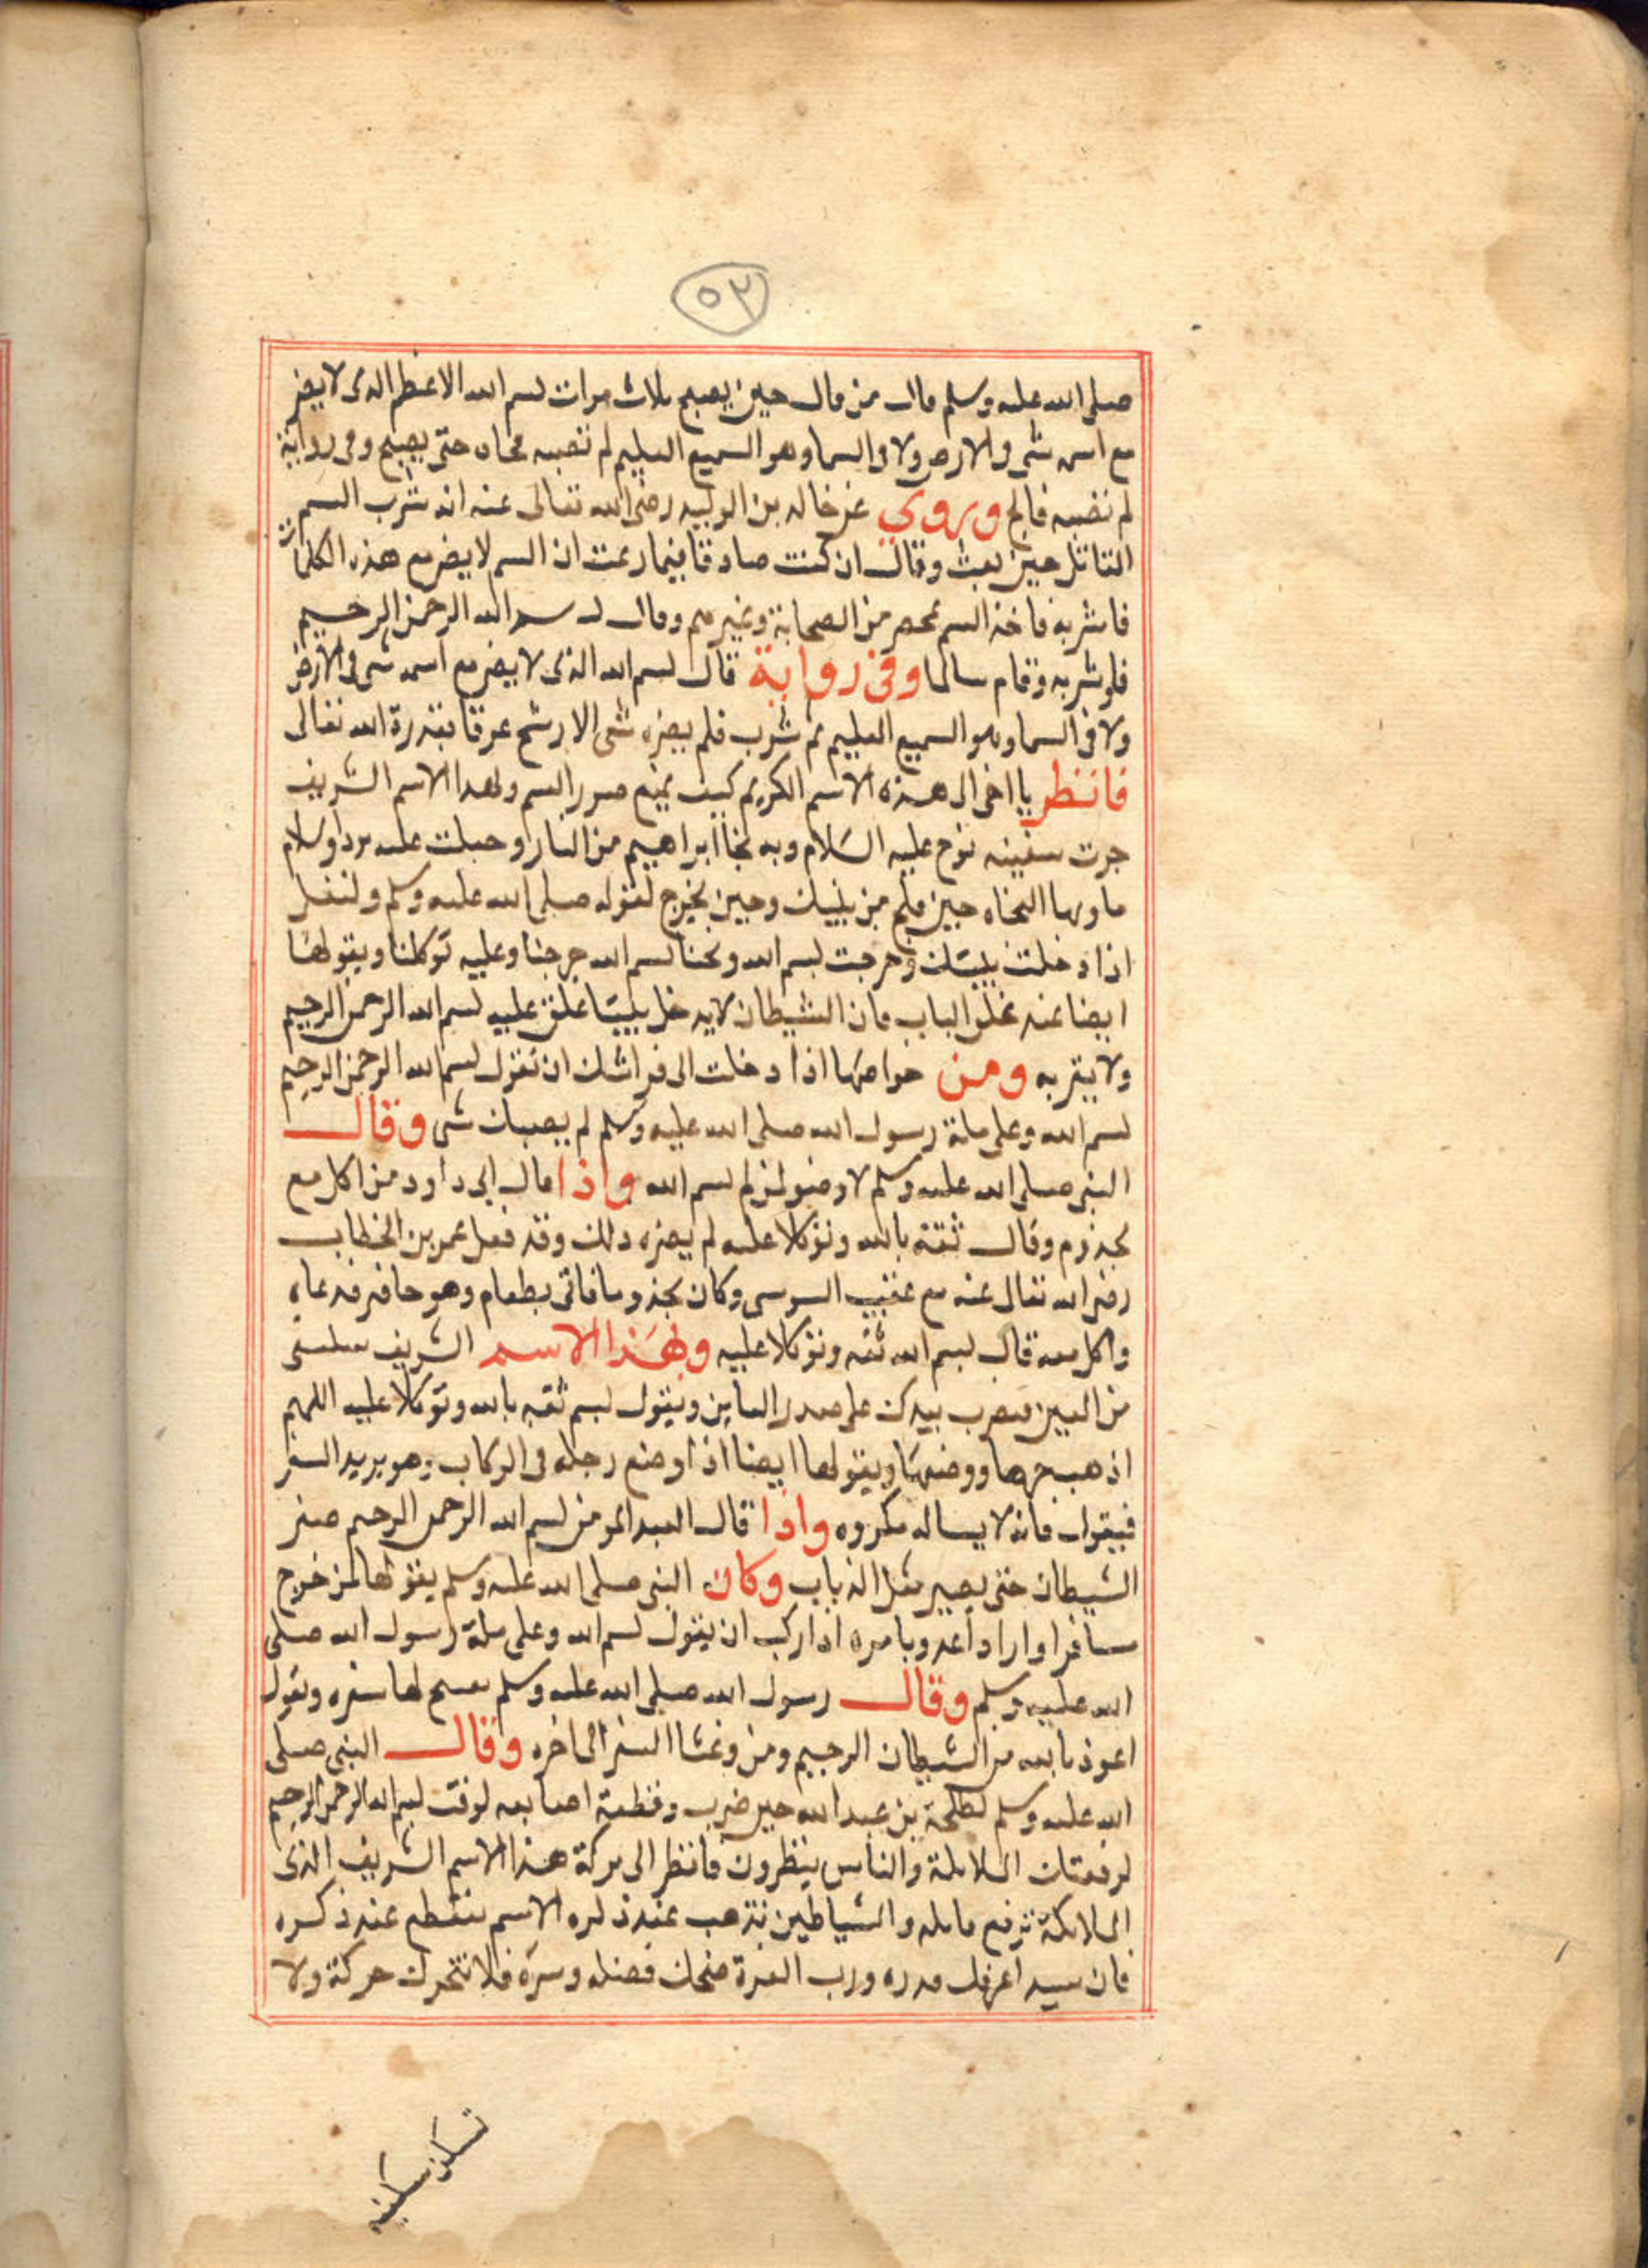 ٥٣
صلى الله عليه وسلم قال من قال حين يصبح ثلاث مرات بسم الله الاعظم الذى لا يضر
مع اسمه شى فى الارض ولا فى السما وهو السميع العليم لم تصبه فجاه حتى يصبح وفى رواية
لم تصبه فالج وروي عن خالد بن الوليد رضى الله تعالى عنه انه شرب السم
القاتل حين بعث وقال ان كنت صادقا فيما زعمت ان السم لا يضر مع هذه الكلمات
فاشربه فاخذ السم بمحضر من الصحابة وغيرهم وقال بسم الله الرحمن الرحيم
فلو شربه وقام سالما وفى رواية قال بسم الله الذى لا يضر مع اسمه شى فى الارض
ولا فى السما وهو السميع العليم ثم شرب فلم يضره شى الا رشح عرقا بقدرة الله تعالى
فانظر يا اخى الى هذه الاسم الكريم كيف يمنع ضرر السم ولهذا الاسم الشريف
جرت سفينه نوح عليه السلام وبه نجا ابراهيم من النار وجعلت عليه بردا وسلام
ما وبها النجاه حين من بيتك وحين يخرج لقوله صلى الله عليه وسلم ولتقل
اذا دخلت بيتك وخرجت بسم الله ولجنا بسم الله خرجنا وعليه توكلنا ويقولها
ايضا عند غلق الباب فان الشيطان لا يدخل بيتا غلق عليه بسم الله الرحمن الرحيم
ولا يقربه ومن خواصها اذا دخلت الى فراشك ان تقول بسم الله الرحمن الرحيم
بسم الله وعلى ملة رسول الله صلى الله عليه وسلم لم يصبك شى وقال
النبى صلى الله عليه وسلم لا وضو لمن لم بسم الله واذا قال ابى داود من اكل مع
مجذوم وقال ثقة بالله وتوكلا عليه لم يضره ذلك وقد فعل عمر بن الخطاب
رضى الله تعالى عنه مع السوسى وكان مجذوما فاتى بطعام وهو حاضر فدعاه
واكل معه قال بسم الله ثقه وتوكلا عليه ولهذا الاسم الشريف
من العين فيضرب بيدك على صدر العاين ويقول بسم ثقه بالله وتوكلا عليه اللهم
اذهب حرها ووضبها ويقولها ايضا اذا وضع رجله فى الركاب وهو يريد السفر
فيقول فانه لا يساله مكروه واذا قال العبد المومن بسم الله الرحمن الرحيم صغر
الشيطان حتى يصير مثل الذباب وكان النبى صلى الله عليه وسلم يقولها لمن خرج
مسافرا واراد اعدو يامره اذا ركب ان يقول بسم الله وعلى ملة رسول الله صلى
الله عليه وسلم وقال رسول الله صلى الله عليه وسلم لها سفره ويقول
اعوذ بالله من الشيطان الرجيم ومن وعثا السفر الى اخره وقال النبى صلى
الله عليه وسلم لطلحة بن عبد الله حين ضرب وقطعة اصابعه لو قلت بسم الله الرحمن الرحيم
لرفعتك الملايكة والناس ينظرون فانظر الى بركة هذا الاسم الشريف الذى
الملائكة ترفع قايله والشياطين تذهب عند ذكره الاسم تنقطع عند ذكره
فان سيدا عرفك قدره ورب العزة منحك فضله وسره فلا تتحرك حركة ولا
تسكن سكنه